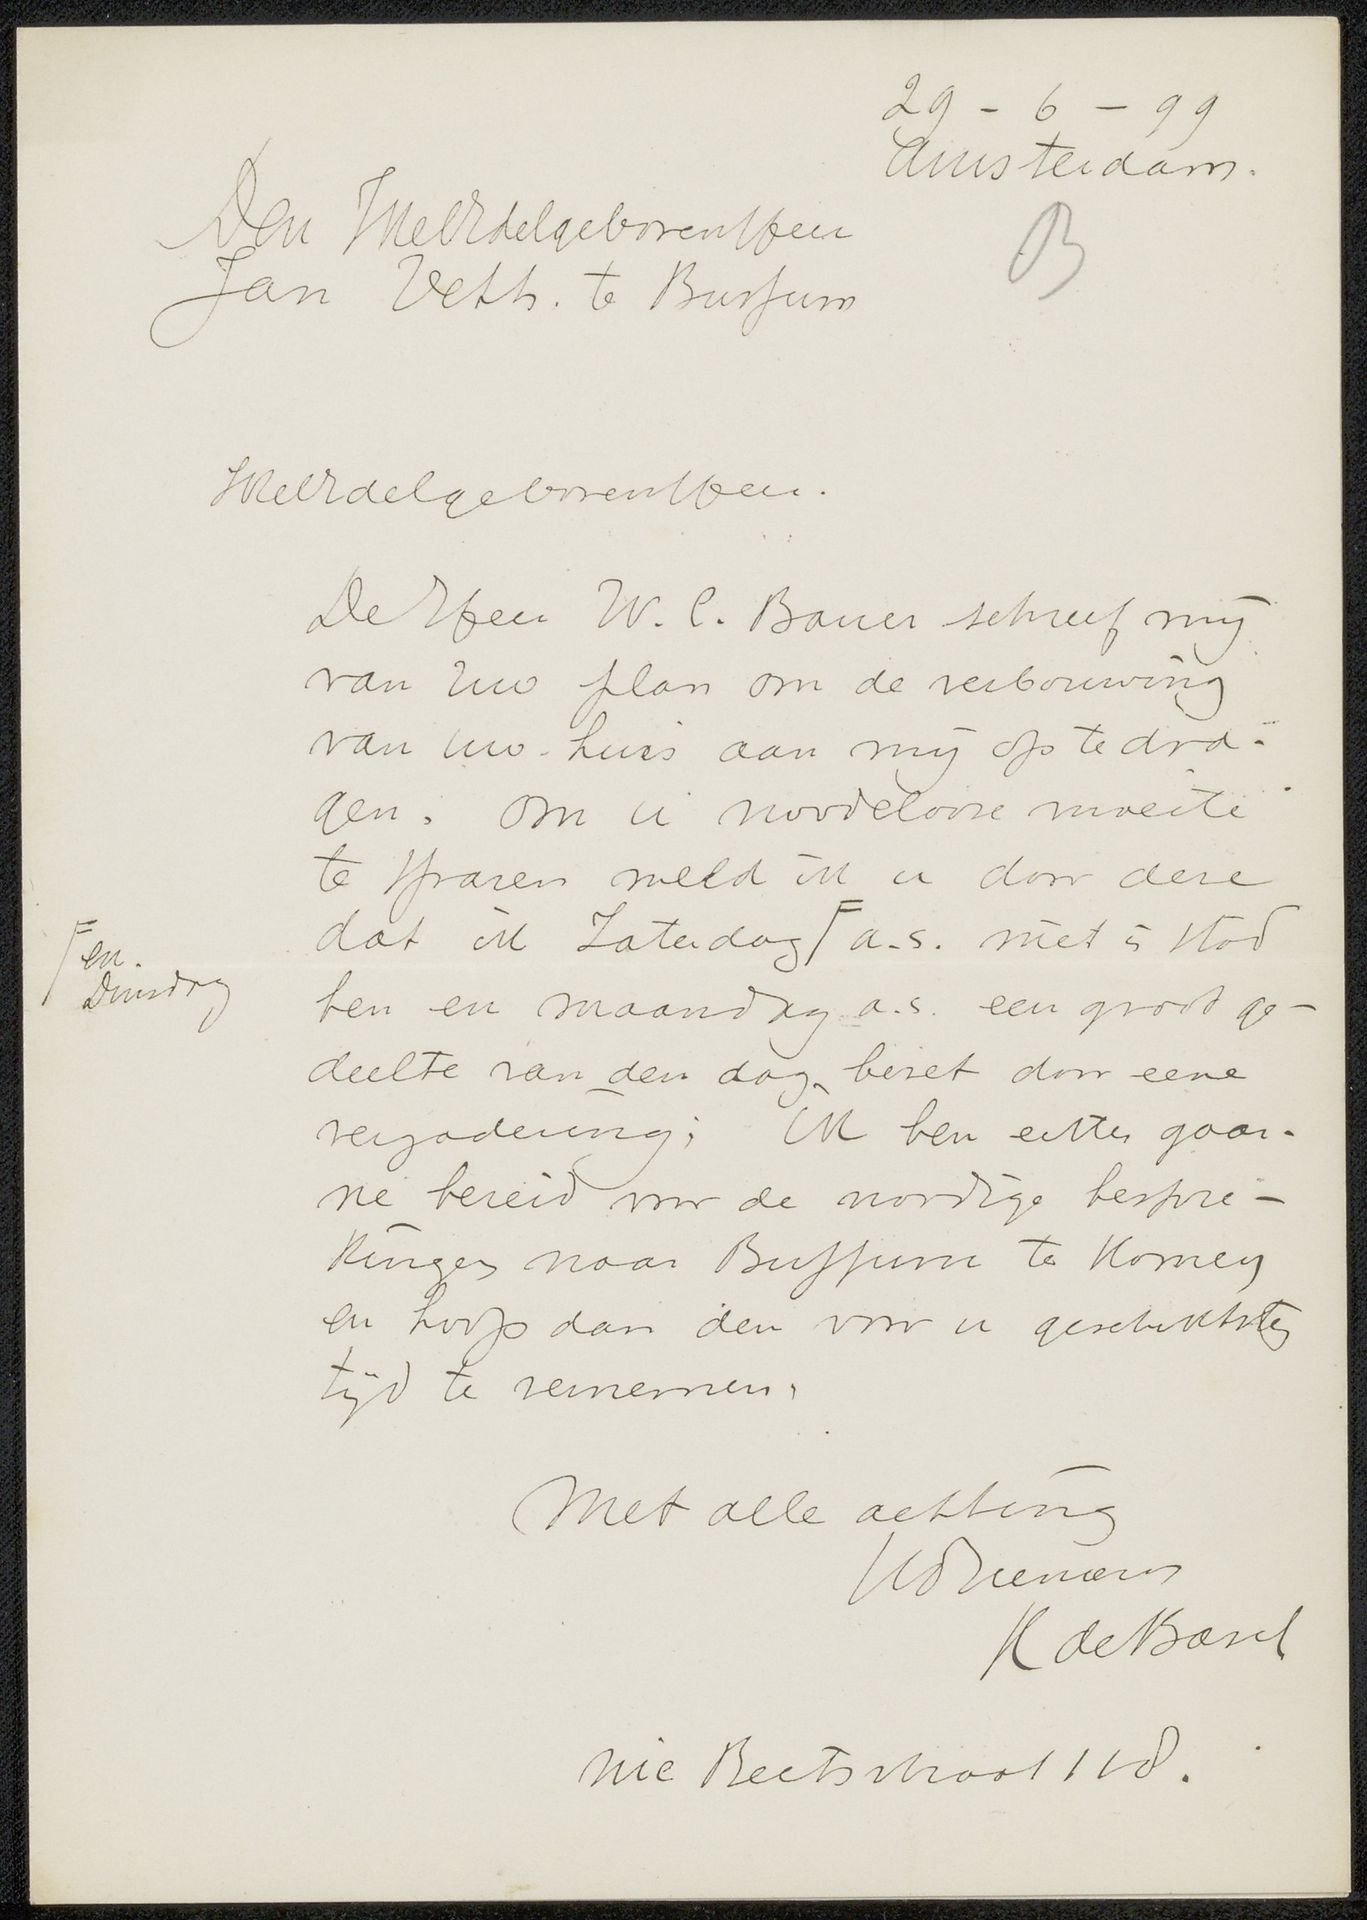 29 - 6 - 99
Amsterdam.
B
Den WelEdelgeboren Heer
Jan Veth. te Bussum
WelEdelgeboren Heer.
De Heer W. C. Bauer schreef mij
van Uw plan om de verbouwing
van uw huis aan mij op te dra-
gen. Om u noodelooze moeite
te sparen meld ik u door deze
dat ik Zaterdag ⌈ a.s. niet in stad
⌈ en
Dinsdag
ben en maandag a.s. een groot ge-
deelte van den dag bezet door eene
vergadering; ik ben echter gaar-
ne bereid voor de noodige bespre-
kingen naar Bussum te komen
en hoop dan den voor u geschiktsten
tijd te vernemen.
Met alle achting
Uw Dienaar
K de Bazel
Nic Beetsstraat 118.